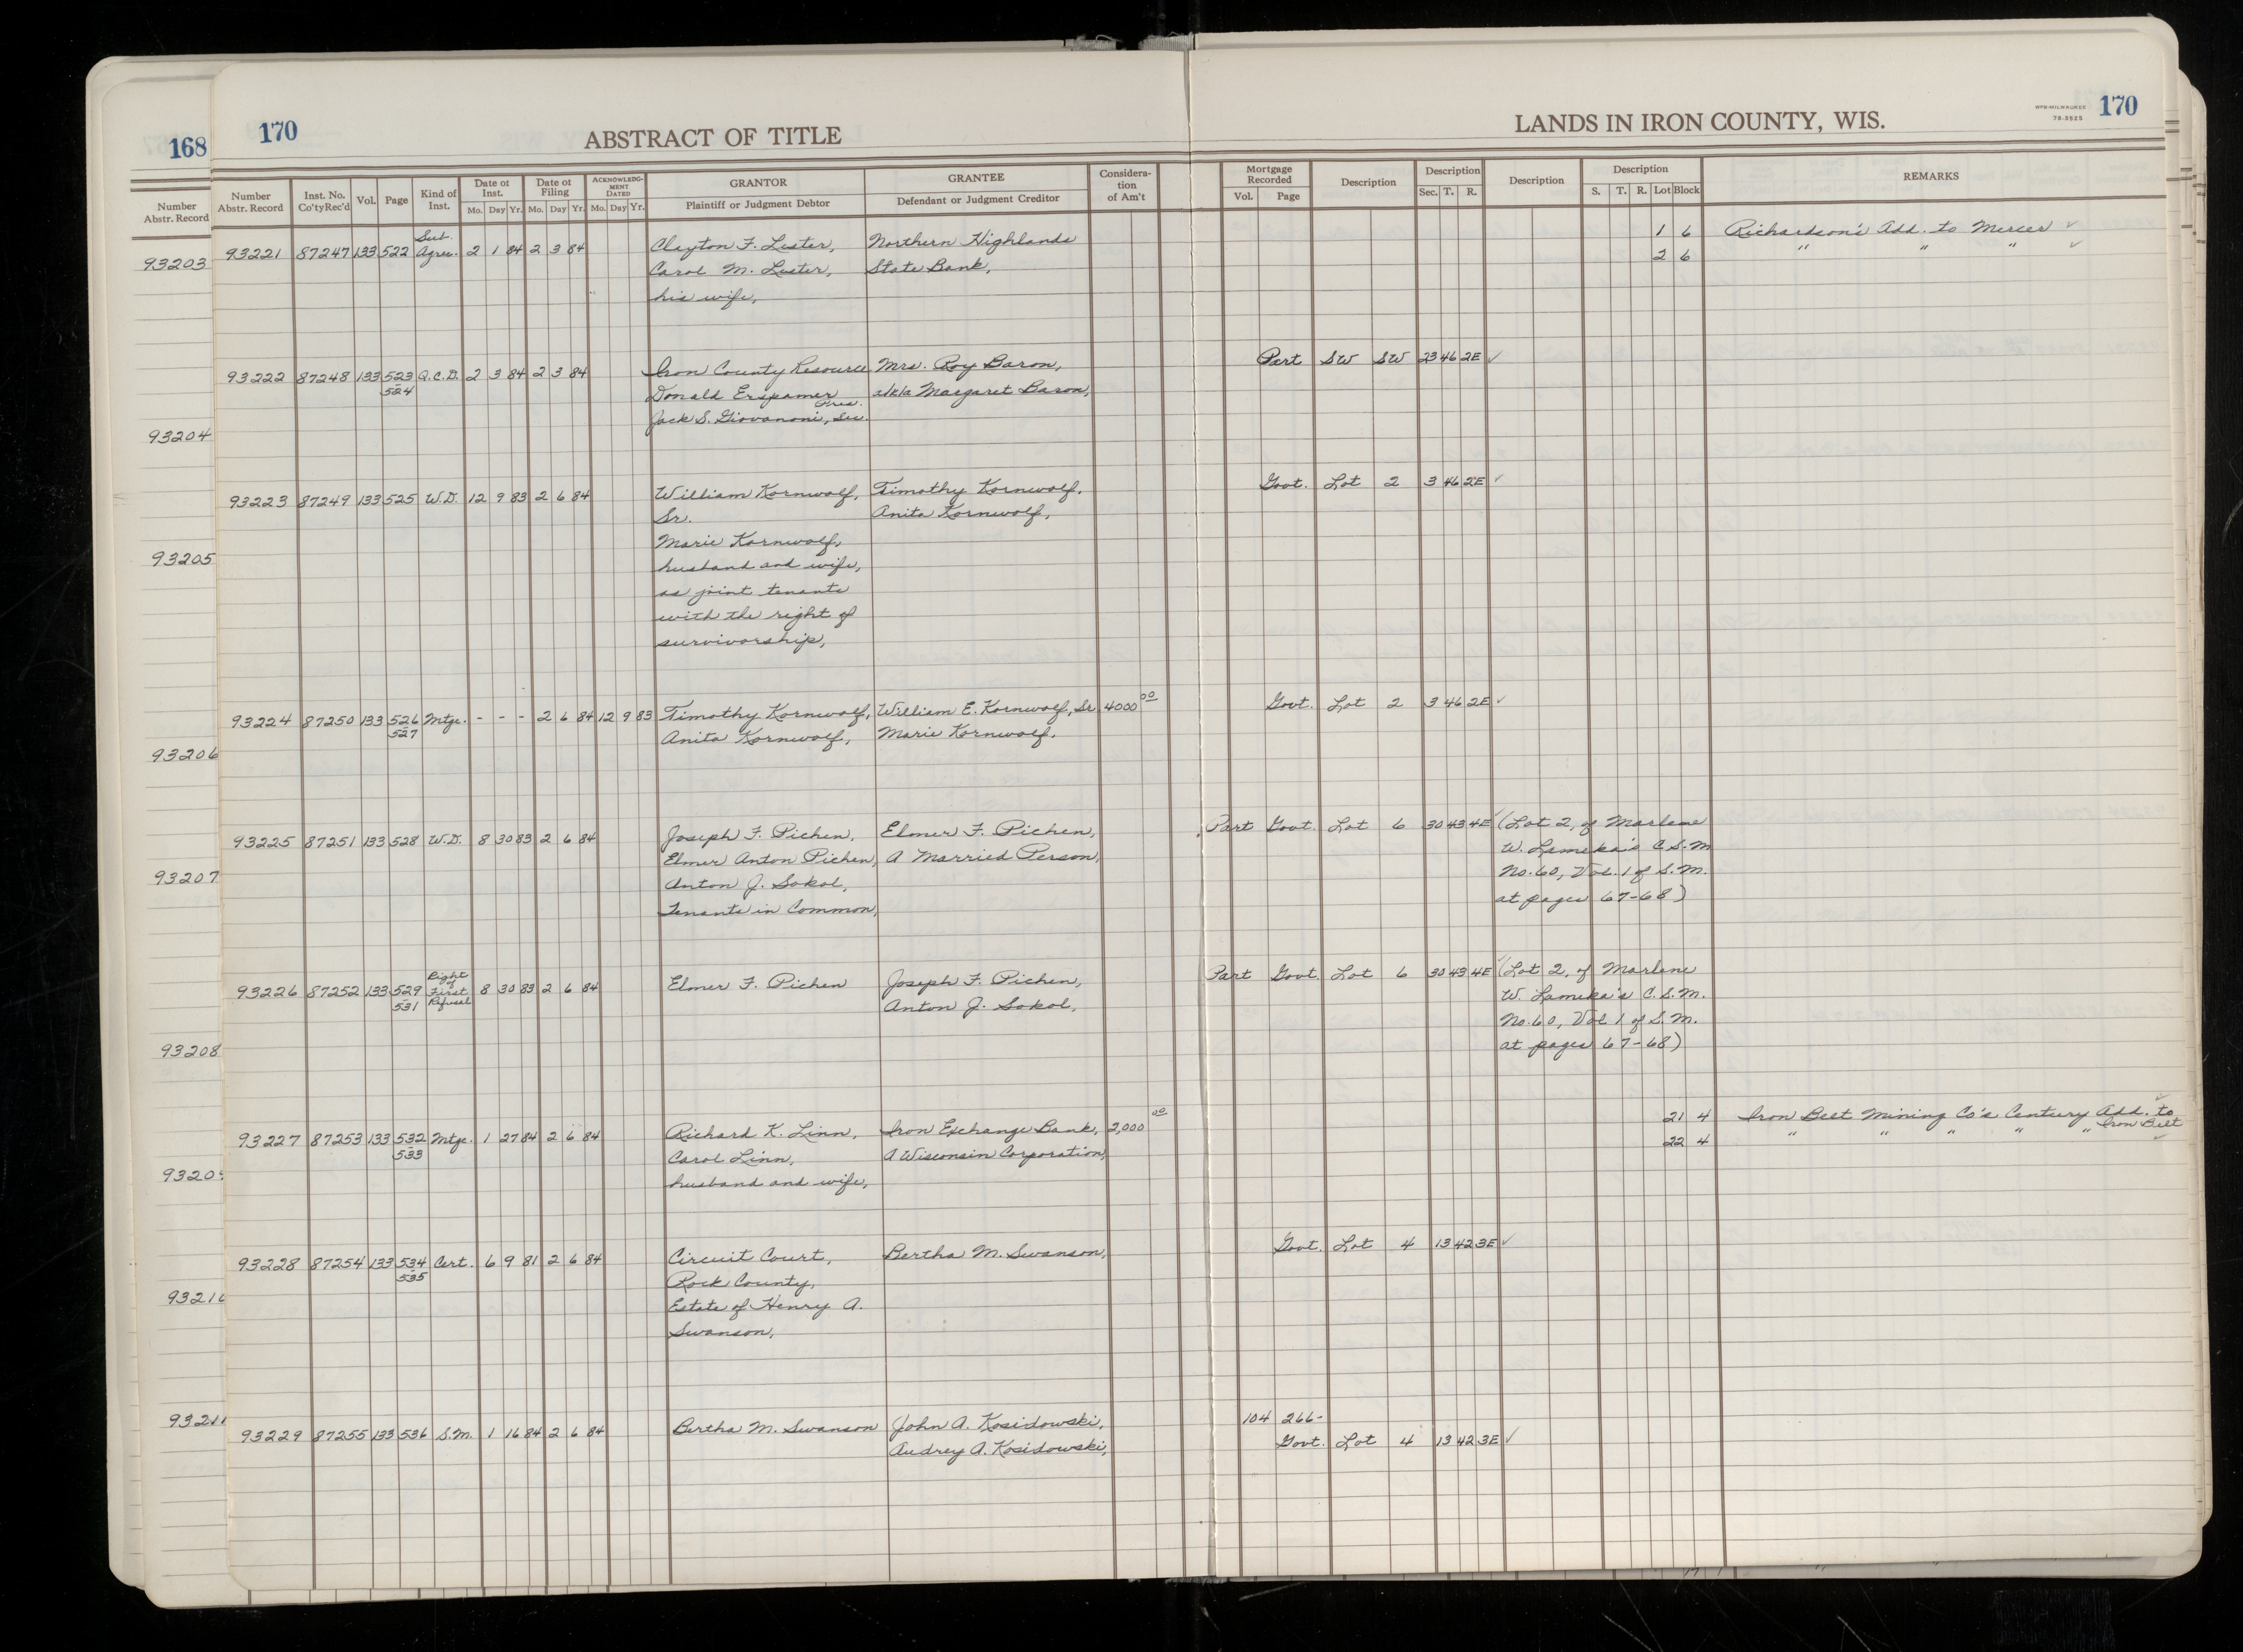 168
170
ABSTRACT OF TITLE
LANDS IN IRON COUNTY, WIS.
WPB-MILWAUKEE
78-3525
170
Number
Abstr. Record
Number
Abstr. Record
Inst. No.
Co'tyRec'd
Vol.
Page
Kind of
Inst.
Date of
Inst.
Mo. Day Yr.
Date of
Filing
Mo. Day Yr.
ACKNOWLEDG-
MENT
DATED
Mo. Day Yr.
GRANTOR
Plaintiff or Judgment Debtor
GRANTEE
Defendant or Judgment Creditor
Considera-
tion
of Am't
Mortgage
Recorded
Vol. Page
Description
Description
Sec. T. R.
Description
Description
S. T. R. Lot Block
REMARKS
93203
93204
93205
93206
93207
93208
9320
9321
9321
Sub.
93221 87247 133 522 Agree. 2 1 84 2 3 84 Clayton F. Luster, Northern Highlands 1 6 Richardson's Add. to Mercer ✓
Carol M. Luster, State Bank, 2 6 " " " ✓
his wife,
93222 87248 133 523 Q.C.D. 2 3 84 2 3 84 Iron County Resource Mrs. Roy Baron, Part SW SW 23 46 2E ✓
524 Donald Erspamer Pres. a/k/a Margaret Baron,
Jack S. Giovanoni, Sec.
93223 87249 133 525 W.D. 12 9 83 2 6 84 William Kornwolf, Timothy Kornwolf, Govt. Lot 2 3 46 2E ✓
Sr. Anita Kornwolf,
Marie Kornwolf,
husband and wife,
as joint tenants
with the right of
survivorship,
93224 87250 133 526 Mtge. - - - 2 6 84 12 9 83 Timothy Kornwolf, William E. Kornwolf, Sr 4000 00 Govt. Lot 2 3 46 2E ✓
527 Anita Kornwolf, Marie Kornwolf,
93225 87251 133 528 W.D. 8 30 83 2 6 84 Joseph F. Pichen, Elmer F. Pichen, Part Govt. Lot 6 30 43 4E ✓ (Lot 2, of Marlene
Elmer Anton Pichen, A Married Person, W. Lameka's C.S.M
Anton J. Sokol, No. 60, Vol. 1 of S.M.
Tenants in Common, at pages 67-68)
Right
of
93226 87252 133 529 First 8 30 83 2 6 84 Elmer F. Pichen Joseph F. Pichen, Part Govt. Lot 6 30 43 4E ✓ (Lot 2, of Marlene
531 Refusal Anton J. Sokol, W. Lameka's C.S.M.
No. 60, Vol 1 of S.M.
at pages 67-68)
93227 87253 133 532 Mtge. 1 27 84 2 6 84 Richard K. Linn, Iron Exchange Bank, 2,000 00 21 4 Iron Belt Mining Co's Century Add. to ✓
533 Carol Linn, A Wisconsin Corporation, 22 4 " " " " " Iron Belt ✓
husband and wife,
93228 87254 133 534 Cert. 6 9 81 2 6 84 Circuit Court, Bertha M. Swanson, Govt. Lot 4 13 42 3E ✓
535 Rock County,
Estate of Henry A.
Swanson,
93229 87255 133 536 S.M. 1 16 84 2 6 84 Bertha M. Swanson John A. Kosidowski, 104 266-
Audrey A. Kosidowski, Govt. Lot 4 13 42 3E ✓